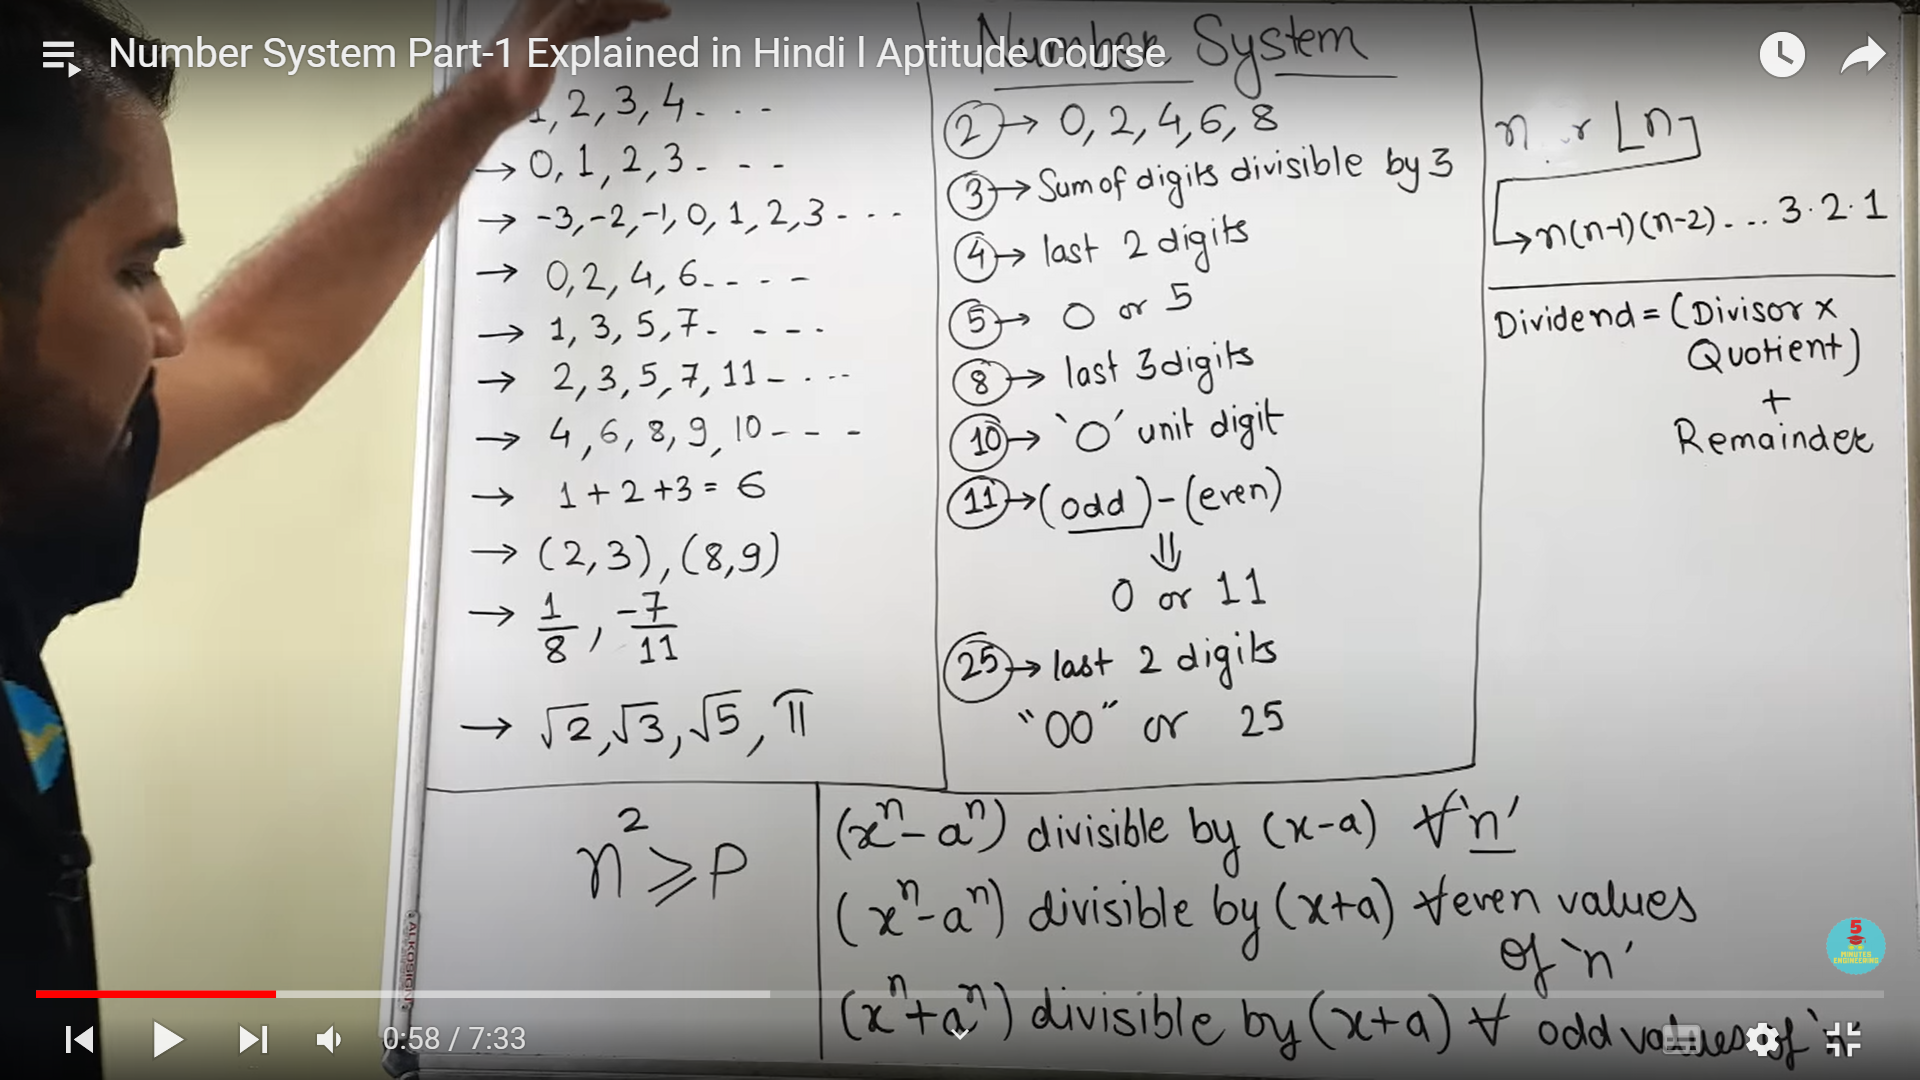 Number System Part-1 Explained in Hindi l Aptitude Course
Number System
1, 2, 3, 4 - - -
→ 0, 1, 2, 3 - - -
→ -3, -2, -1, 0, 1, 2, 3 - - -
→ 0, 2, 4, 6 - - - -
→ 1, 3, 5, 7 - - - -
→ 2, 3, 5, 7, 11 - - - -
→ 4, 6, 8, 9, 10 - - -
→ 1 + 2 + 3 = 6
→ (2, 3), (8, 9)
→ 1/8, -7/11
→ √2, √3, √5, π
② → 0, 2, 4, 6, 8
③ → Sum of digits divisible by 3
④ → last 2 digits
⑤ → 0 or 5
⑧ → last 3 digits
⑩ → '0' unit digit
⑪ → (odd) - (even)
⇓
0 or 11
㉕ → last 2 digits
"00" or 25
n r ⌊n⌉
↳ n(n-1)(n-2) - ... 3·2·1
Dividend = (Divisor x
Quotient)
+
Remainder
n² ≥ P
(xⁿ - aⁿ) divisible by (x-a) ∀ 'n'
(xⁿ - aⁿ) divisible by (x+a) ∀ even values
of 'n'
(xⁿ + aⁿ) divisible by (x+a) ∀ odd values of 'n'
ALKOSIGN
5
MINUTES
ENGINEERING
0:58 / 7:33